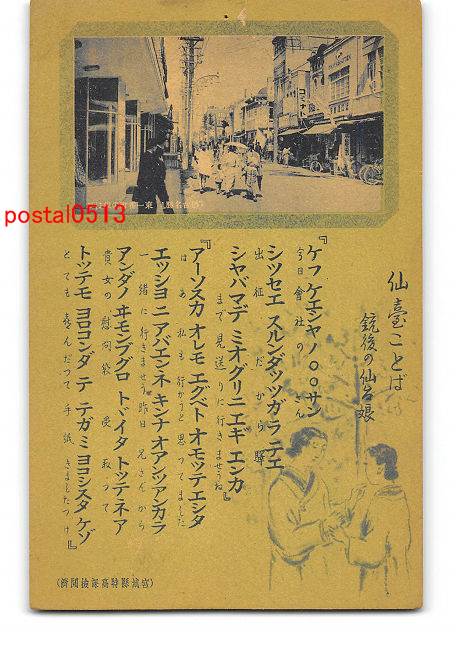 仙臺ことば
銃後の仙台娘
『ケフ ケエシャノ〇〇サン
今日會社の さん
シツセエ スルンダッツガラ ニエ
出征 だから 驛
シヤバマデ ミオグリニ エギ エンカ』
まで見送りに行きませうね
『アーソスカ オレモ エグベト オモッテエシタ
はあ 私も行かうと思つてました
エッショ ニアバエンネ キンナ オアンツアンカラ
一緒に行きませう 昨日 兄さんから
アンダノ ヰモンブグロ トヾイタ トッテネア
貴女の慰問袋 受取つて
トッテモ ヨロコンダ テ テガミ ヨコシスタ ケゾ』
とても喜んだつて手紙きましたつけ
(宮城縣特高課檢閲濟)
postal0513